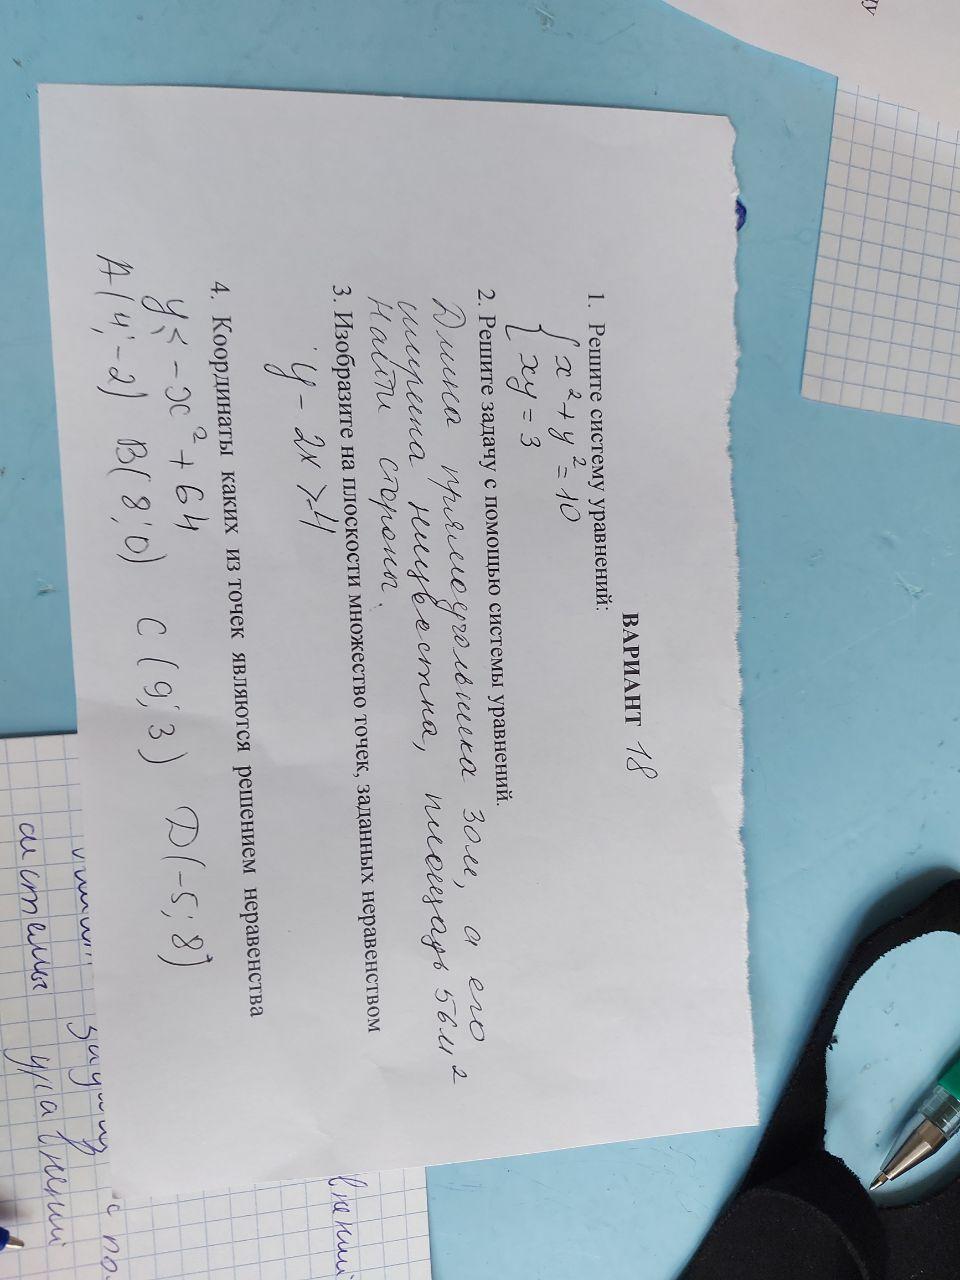 ВАРИАНТ 18
1. Решите систему уравнений:
x² + y² = 10
xy = 3
2. Решите задачу с помощью системы уравнений.
Длина прямоугольника 30м, а его
ширина неизвестна, площадь 56м²
Найти стороны.
3. Изобразите на плоскости множество точек, заданных неравенством
y - 2x > -4
4. Координаты каких из точек являются решением неравенства
y < -x² + 64
A(4; -2) B(8; 0) C(9; 3) D(-5; 8)
системы уравнений